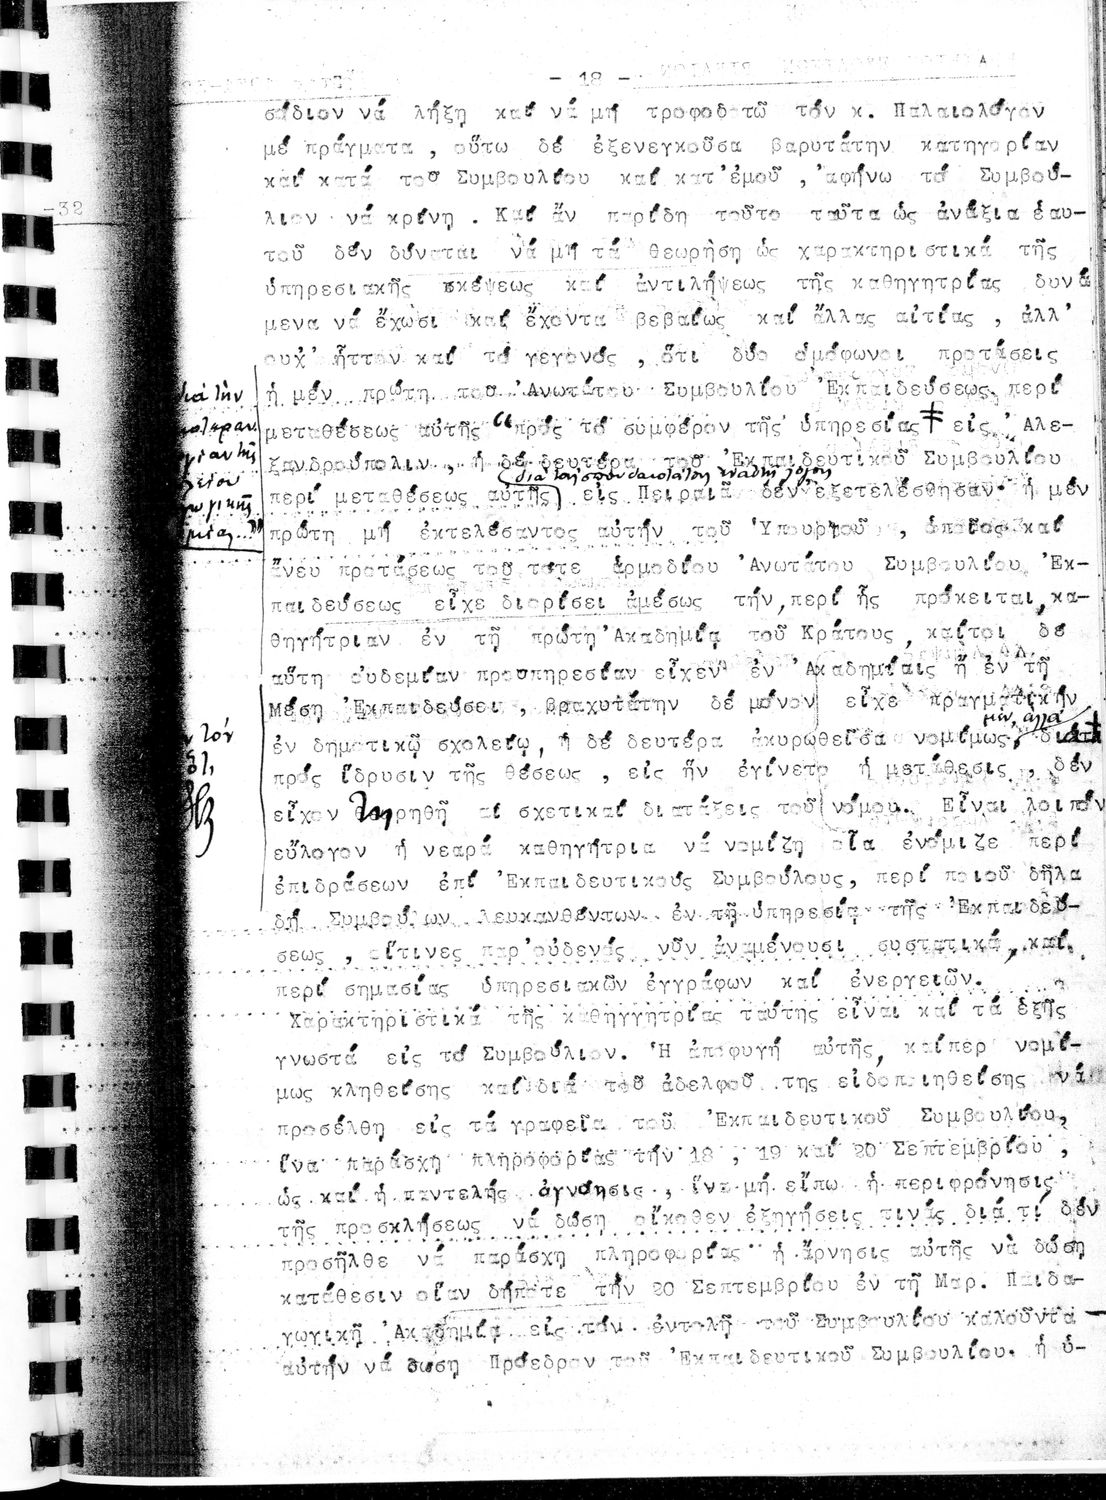 - 18 -
-32
σίδιον νά λήξη καί νά μή τροφοδοτῶ τόν κ. Παλαιολόγον
μέ πράγματα , οὕτω δέ ἐξενεγκοῦσα βαρυτάτην κατηγορίαν
καί κατά τοῦ Συμβουλίου καί κατ'ἐμοῦ , ἀφήνω τό Συμβού-
λιον νά κρίνη . Καί ἄν παρίδη τοῦτο ταῦτα ὡς ἀνάξια ἑαυ-
τοῦ δέν δύναται νά μή τά θεωρήση ὡς χαρακτηριστικά τῆς
ὑπηρεσιακῆς σκέψεως καί ἀντιλήψεως τῆς καθηγητρίας δυνά
μενα νά ἔχωσι καί ἔχοντα βεβαίως καί ἄλλας αἰτίας , ἀλλ'
οὐχ' ἧττον καί τό γεγονός , ὅτι δύο ὁμόφωνοι προτάσεις
ἡ μέν πρώτη τοῦ Ἀνωτάτου Συμβουλίου Ἐκπαιδεύσεως περί
μεταθέσεως αὐτῆς "πρός τό συμφέρον τῆς ὑπηρεσίας" εἰς Ἀλε-
ξανδρούπολιν , ἡ δέ δευτέρα τοῦ Ἐκπαιδευτικοῦ Συμβουλίου
περί μεταθέσεως αὐτῆς εἰς Πειραιᾶ δέν ἐξετελέσθησαν· ἡ μέν
πρώτη μή ἐκτελέσαντος αὐτήν τοῦ Ὑπουργοῦ , ὁποῖος καί
ἄνευ προτάσεως τοῦ τότε ἁρμοδίου Ἀνωτάτου Συμβουλίου Ἐκ-
παιδεύσεως εἶχε διορίσει ἀμέσως τήν, περί ἧς πρόκειται, κα-
θηγήτριαν ἐν τῇ πρώτῃ Ἀκαδημίᾳ τοῦ Κράτους , καίτοι δέ
αὕτη οὐδεμίαν προυπηρεσίαν εἶχεν ἐν Ἀκαδημίαις ἤ ἐν τῇ
Μέση Ἐκπαιδεύσει , βραχυτάτην δέ μόνον εἶχε πραγματικήν
μέν, ἀλλά
ἐν δημοτικῷ σχολείῳ, ἡ δέ δευτέρα ἀκυρωθεῖσα νομίμως, διότι
πρός ἵδρυσιν τῆς θέσεως , εἰς ἥν ἐγίνετο ἡ μετάθεσις , δέν
εἶχον τηρηθῆ αἱ σχετικαί διατάξεις τοῦ νόμου. Εἶναι λοιπόν
εὔλογον ἡ νεαρά καθηγήτρια νά νομίζη οἷα ἐνόμιζε περί
ἐπιδράσεων ἐπί Ἐκπαιδευτικούς Συμβούλους, περί ποιοῦ δῆλα
δή Συμβούλων λευκανθέντων ἐν τῇ ὑπηρεσίᾳ τῆς Ἐκπαιδεύ-
σεως , οἵτινες παρ'οὐδενός νῦν ἀναμένουσι συστατικά, καί
περί σημασίας ὑπηρεσιακῶν ἐγγράφων καί ἐνεργειῶν.
Χαρακτηριστικά τῆς καθηγγητρίας ταύτης εἶναι καί τά ἑξῆς
γνωστά εἰς τό Συμβούλιον. Ἡ ἀποφυγή αὐτῆς, καίπερ νομί-
μως κληθείσης καί διά τοῦ ἀδελφοῦ της εἰδοποιηθείσης νά
προσέλθη εἰς τά γραφεῖα τοῦ Ἐκπαιδευτικοῦ Συμβουλίου,
ἵνα παράσχη πληροφορίας τήν 18 , 19 καί 20 Σεπτεμβρίου ,
ὡς καί ἡ παντελής ἀγνόησις , ἵνα μή εἴπω ἡ περιφρόνησις
τῆς προσκλήσεως νά δώση οἴκοθεν ἐξηγήσεις τινάς διά τί δέν
προσῆλθε νά παράσχη πληροφορίας ἡ ἄρνησις αὐτῆς νὰ δώση
κατάθεσιν οἵαν δήποτε τήν 20 Σεπτεμβρίου ἐν τῇ Μαρ. Παιδα-
γωγικῇ Ἀκαδημίᾳ εἰς τόν ἐντολῇ τοῦ Συμβουλίου καλοῦντα
αὐτήν νά δώση Πρόεδρον τοῦ Ἐκπαιδευτικοῦ Συμβουλίου· ἡ ὑ-